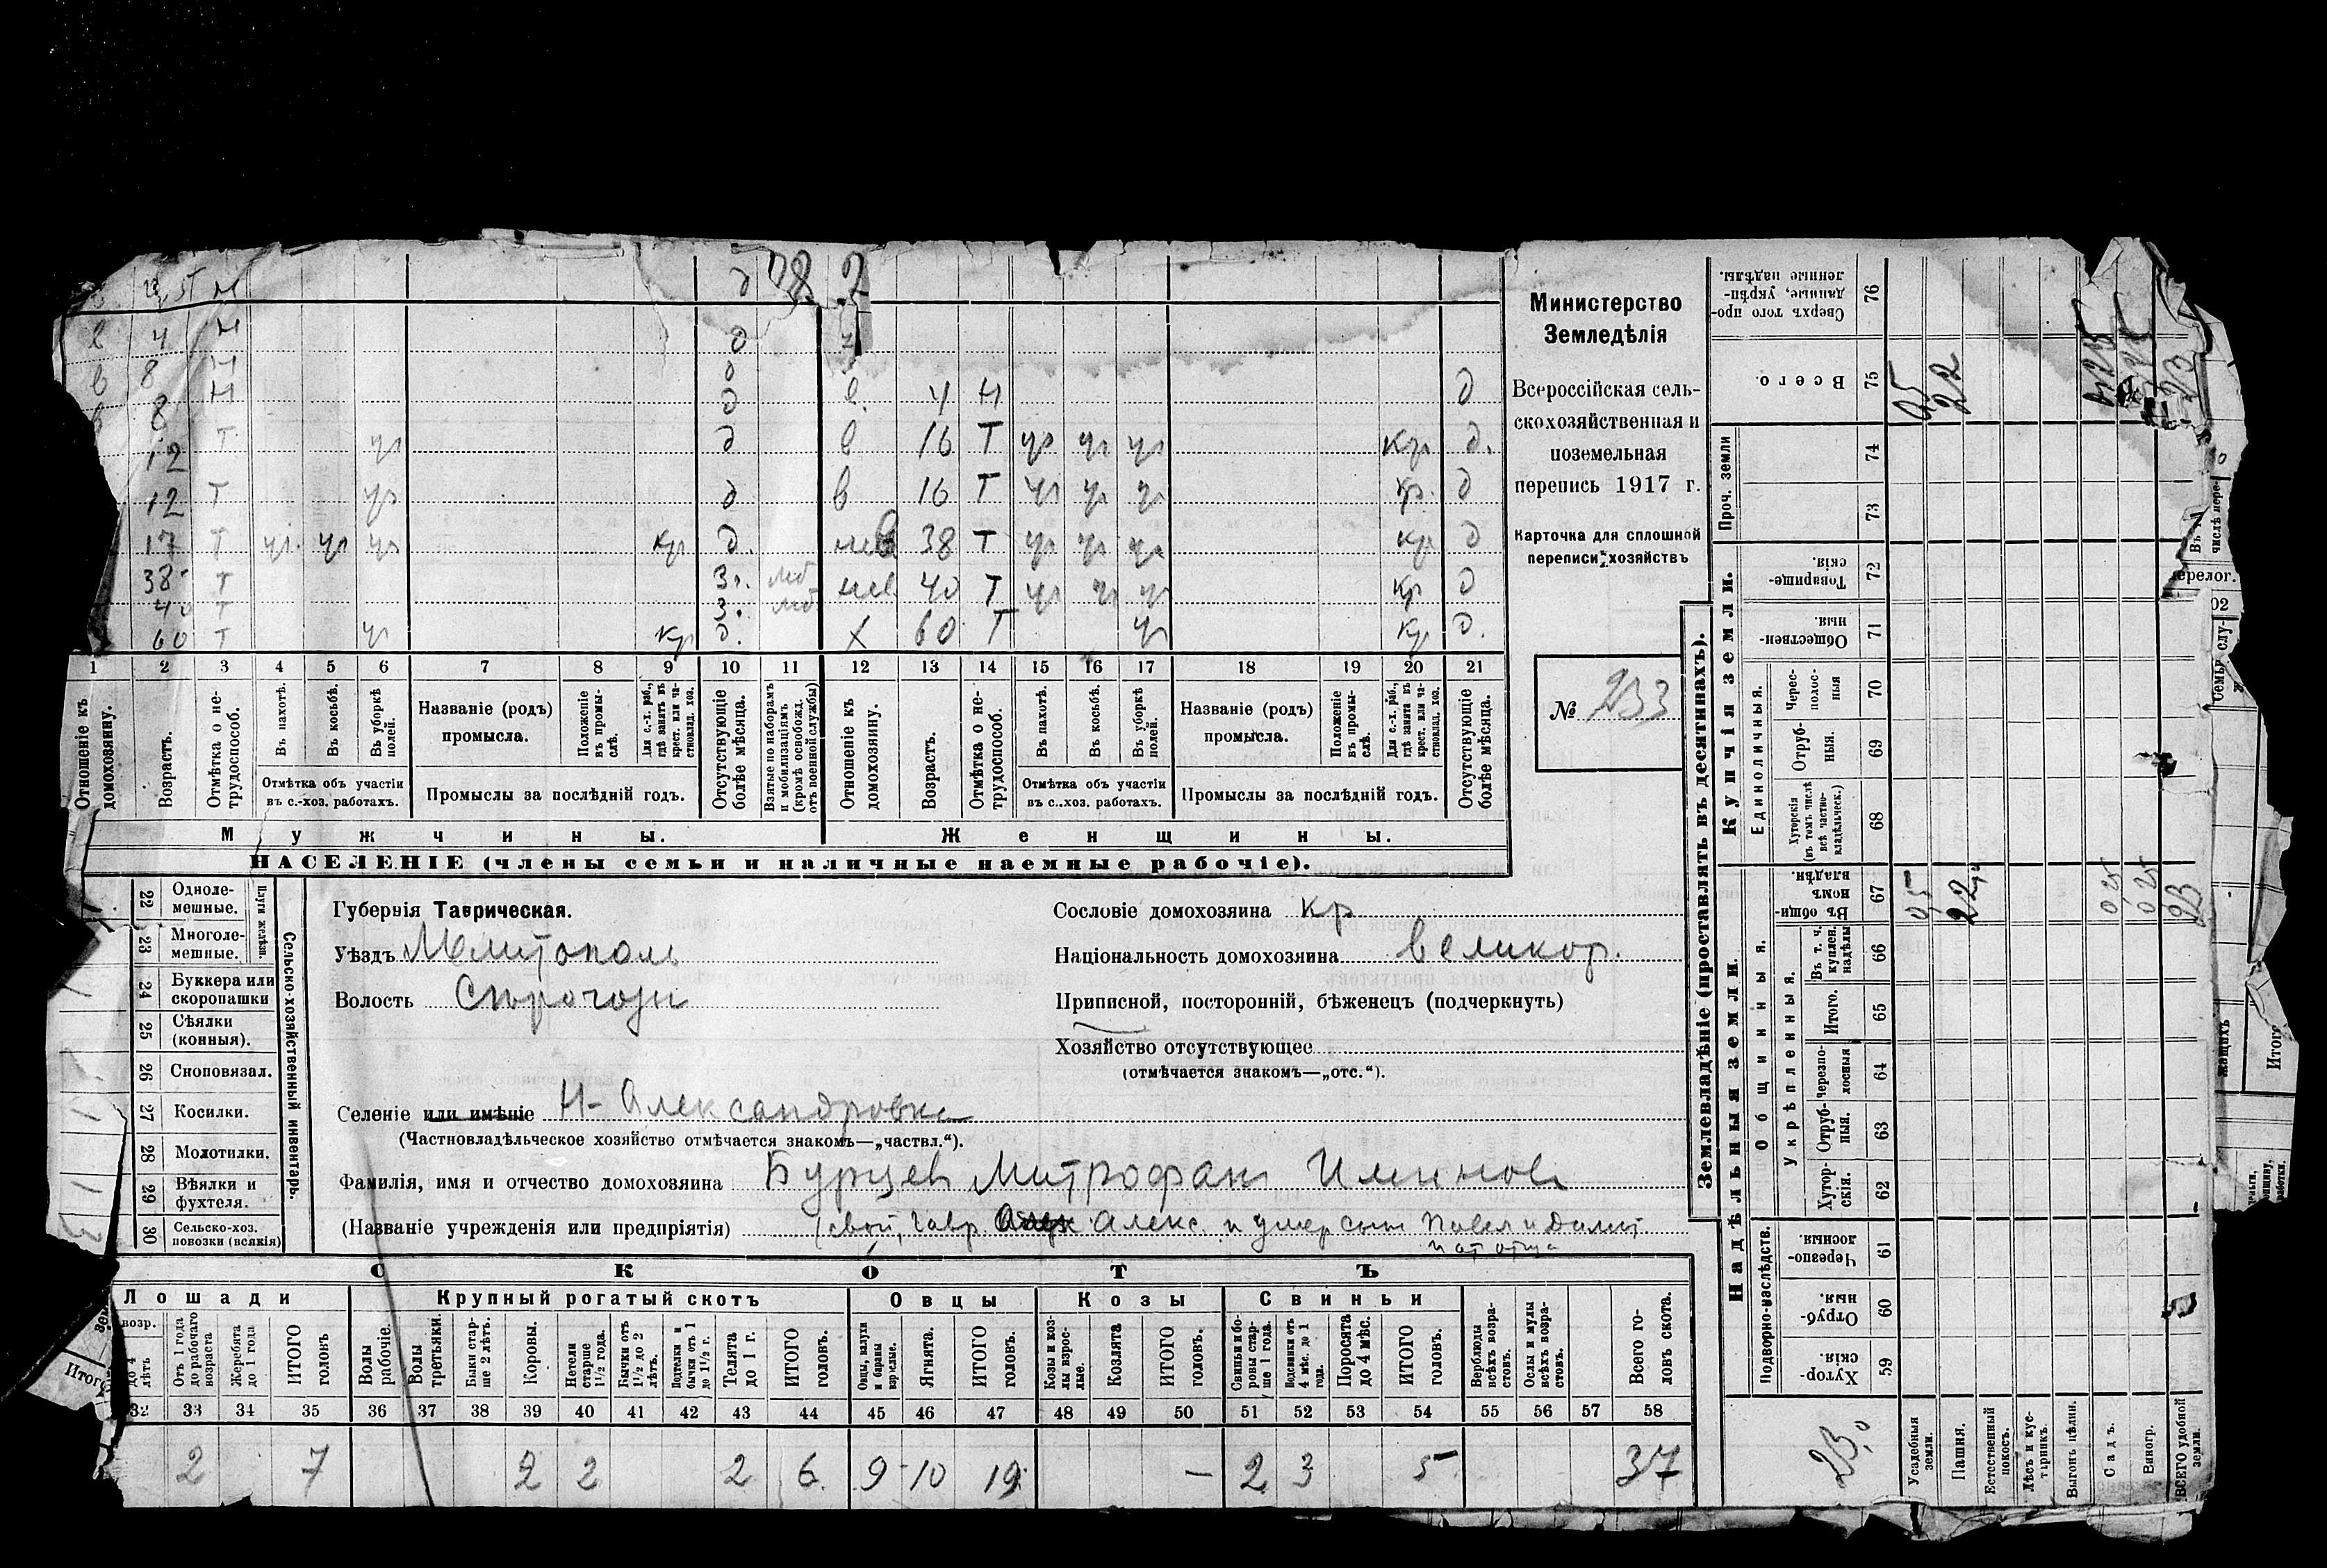 в 4 н д
в 8 н д
8 н д в. 4 н д
12 т ур д в 16 т ур ур ур кр д.
12 т ур д в 16 т ур ур ур кр. д
17 т ур. ур ур кр д. нев 38 т ур ур ур кр д
38 т З. мб нев 40 т ур ур ур кр д
40 т З. мб
60 т ур кр д. х 60 т ур кр д.
1 2 3 4 5 6 7 8 9 10 11 12 13 14 15 16 17 18 19 20 21
Отношеніе къ домохозяину.
Возрастъ.
Отмѣтка о нетрудоспособ.
Въ пахотѣ.
Въ косьбѣ.
Въ уборкѣ полей.
Отмѣтка объ участіи въ с.-хоз. работахъ.
Названіе (родъ) промысла.
Положеніе въ промыслѣ.
Для с.-х. раб., гдѣ занятъ въ крест. или частновлад. хоз.
Промыслы за послѣдній годъ.
Отсутствующіе болѣе мѣсяца.
Взятые по наборамъ и мобилизаціямъ (кромѣ освобожд. отъ военной службы)
Отношеніе къ домохозяину.
Возрастъ.
Отмѣтка о нетрудоспособ.
Въ пахотѣ.
Въ косьбѣ.
Въ уборкѣ полей.
Отмѣтка объ участіи въ с.-хоз. работахъ.
Названіе (родъ) промысла.
Положеніе въ промыслѣ.
Для с.-х. раб., гдѣ занята въ крест. или частновлад. хоз.
Промыслы за послѣдній годъ.
Отсутствующіе болѣе мѣсяца.
Мужчины. Женщины.
НАСЕЛЕНІЕ (члены семьи и наличные наемные рабочіе).
Министерство
Земледѣлія
Всероссійская сель-
скохозяйственная и
поземельная
перепись 1917 г.
Карточка для сплошной
переписи хозяйствъ
№ 233
Сельско-хозяйственный инвентарь.
Плуги желѣзн.
22 Однолемешные.
23 Многолемешные.
24 Буккера или скоропашки
25 Сѣялки (конныя).
26 Сноповязал.
27 Косилки.
28 Молотилки.
29 Вѣялки и фухтеля.
30 Сельско-хоз. повозки (всякія)
Губернія Таврическая.
Уѣздъ Мелитополь
Волость Сѣрогозы
Сословіе домохозяина кр
Національность домохозяина великор.
Приписной, посторонній, бѣженецъ (подчеркнуть)
Хозяйство отсутствующее
(отмѣчается знакомъ—„отс.“).
Селеніе или имѣніе Н-Александровка
(Частновладѣльческое хозяйство отмѣчается знакомъ—„частвл.“).
Фамилія, имя и отчество домохозяина Бурцев Митрофан
(Названіе учрежденія или предпріятія) (свой, Алекс. и умер сын Павел и
СКОТЪ
Лошади Крупный рогатый скотъ Овцы Козы Свиньи
возр. до 4 лѣтъ
Отъ 1 года до рабочаго возраста
Жеребята до 1 года
ИТОГО головъ
Волы рабочіе.
Волы третьяки.
Быки старше 2 лѣтъ.
Коровы.
Нетели старше 1 1/2 года.
Бычки отъ 1 1/2 до 2 лѣтъ.
Подтелки и бычки отъ 1 до 1 1/2 г.
Телята до 1 г.
ИТОГО головъ.
Овцы, валухи и бараны взрослые.
Ягнята.
ИТОГО головъ.
Козы и козлы взрослые.
Козлята
ИТОГО головъ.
Свиньи и боровы старше 1 года.
Подсвинки отъ 4 мѣс. до 1 года.
Поросята до 4 мѣс.
ИТОГО головъ.
Верблюды всѣхъ возрастовъ.
Ослы и мулы всѣхъ возрастовъ.
Всего головъ скота.
32 33 34 35 36 37 38 39 40 41 42 43 44 45 46 47 48 49 50 51 52 53 54 55 56 57 58
2 7 2 2 2 6 9 10 19 — 2 3 5 37
Землевладѣніе (проставлять въ десятинахъ).
Надѣльныя земли. Купчія земли. Проч. земли
Подворно-наслѣдств.
Общинныя.
Укрѣпленныя.
Единоличныя.
Хуторскія. 59
Отрубныя. 60
Черезполосныя. 61
Хуторскія. 62
Отрубныя. 63
Черезполосныя 64
Итого. 65
Въ т. ч. куплен. надѣлы 66
Въ общинномъ владѣн. 67
Хуторскія (въ томъ числѣ всѣ частновладѣльческ.) 68
Отрубныя. 69
Чересполосныя 70
Общественныя. 71
Товарищескія. 72
73
74
Всего. 75
Сверхъ того проданные, укрѣпленные надѣлы. 76
Усадебныя земли.
Пашня.
Естественный покосъ.
Лѣсъ и кустарникъ.
Выгонъ цѣлин.
Садъ.
Виногр.
ВСЕГО удобной земли.
0,5
22,0
0,25
0,25
23
23,0